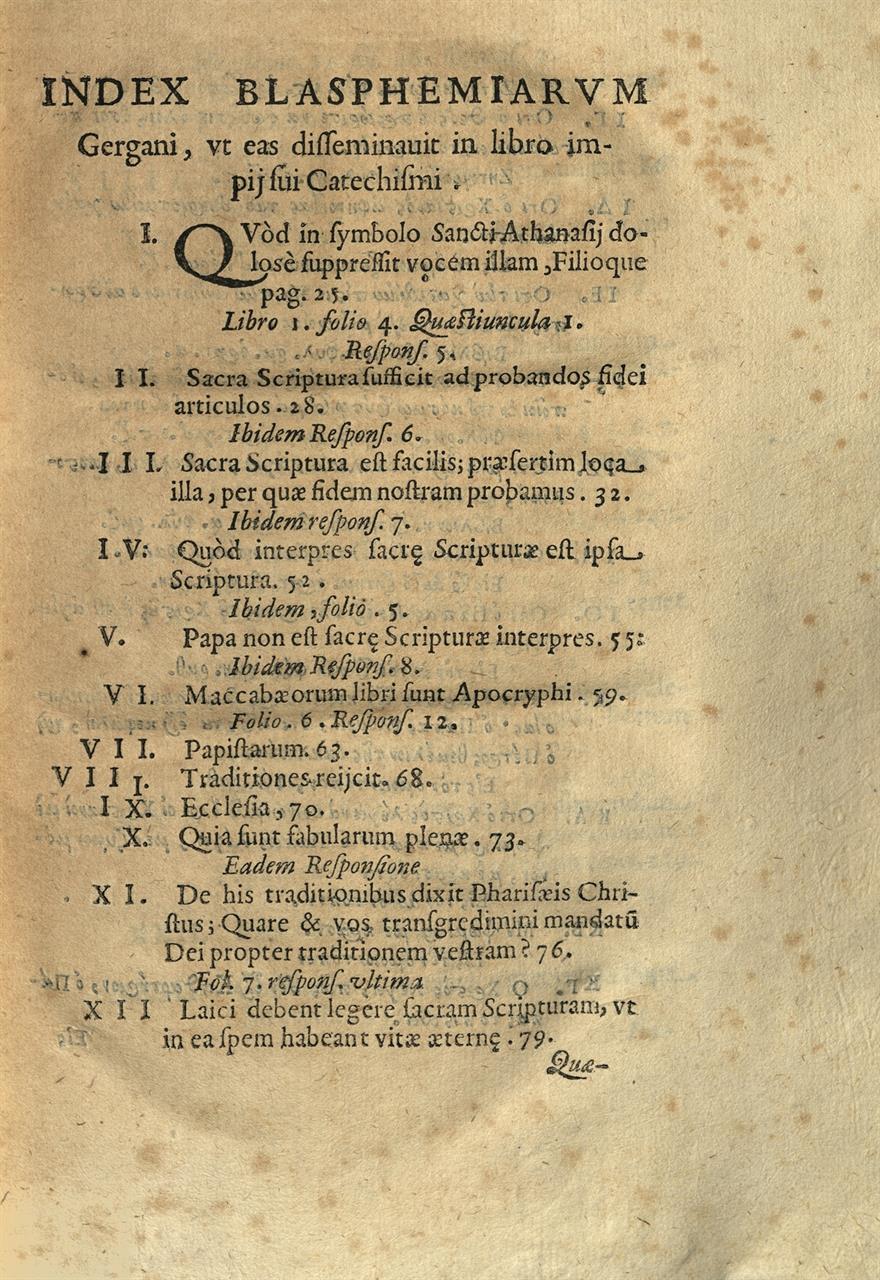 INDEX BLASPHEMIARVM
Gergani, vt eas diſſeminauit in libro im-
pij ſui Catechiſmi.
I. QVòd in ſymbolo Sancti Athanaſij do-
loſè ſuppreſſit vocem illam, Filioque
pag. 25.
Libro 1. folio 4. Quæſtiuncula 1.
Reſponſ. 5.
II. Sacra Scriptura ſufficit ad probandos fidei
articulos. 28.
Ibidem Reſponſ. 6.
III. Sacra Scriptura eſt facilis; præſertim loca
illa, per quæ fidem noſtram probamus. 32.
Ibidem reſponſ. 7.
IV. Quòd interpres ſacrę Scripturæ eſt ipſa
Scriptura. 52.
Ibidem, folio. 5.
V. Papa non eſt ſacrę Scripturæ interpres. 55.
Ibidem Reſponſ. 8.
VI. Maccabæorum libri ſunt Apocryphi. 59.
Folio. 6. Reſponſ. 12.
VII. Papiſtarum. 63.
VIII. Traditiones reijcit. 68.
IX. Eccleſia, 70.
X. Quia ſunt fabularum plenæ. 73.
Eadem Reſponſione
XI. De his traditionibus dixit Phariſæis Chri-
ſtus; Quare & vos tranſgredimini mandatū
Dei propter traditionem veſtram? 76.
Fol. 7. reſponſ. vltima
XII Laici debent legere ſacram Scripturam, vt
in ea ſpem habeant vitæ æternę. 79.
Quæ-